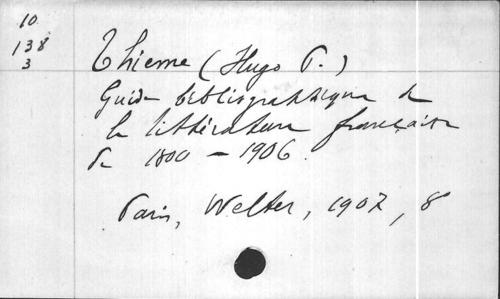 10
138
3
Thieme (Hugo P.)
Guide bibliographique de
la littérature française
de 1800 - 1906.
Paris, Welter, 1907, 8°